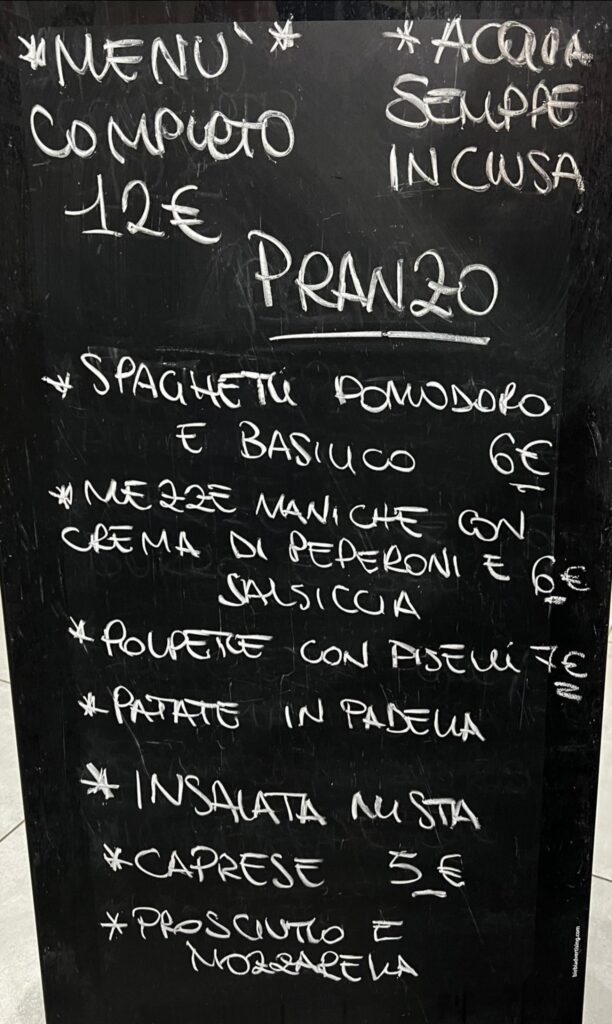 *MENU`*
COMPLETO
12€
*ACQUA
SEMPRE
INCLUSA
PRANZO
*SPAGHETTI POMODORO
E BASILICO 6€
*MEZZE MANICHE CON
CREMA DI PEPERONI E 6€
SALSICCIA
*POLPETTE CON PISELLI 7€
*PATATE IN PADELLA
*INSALATA MISTA
*CAPRESE 5€
*PROSCIUTTO E
MOZZARELLA